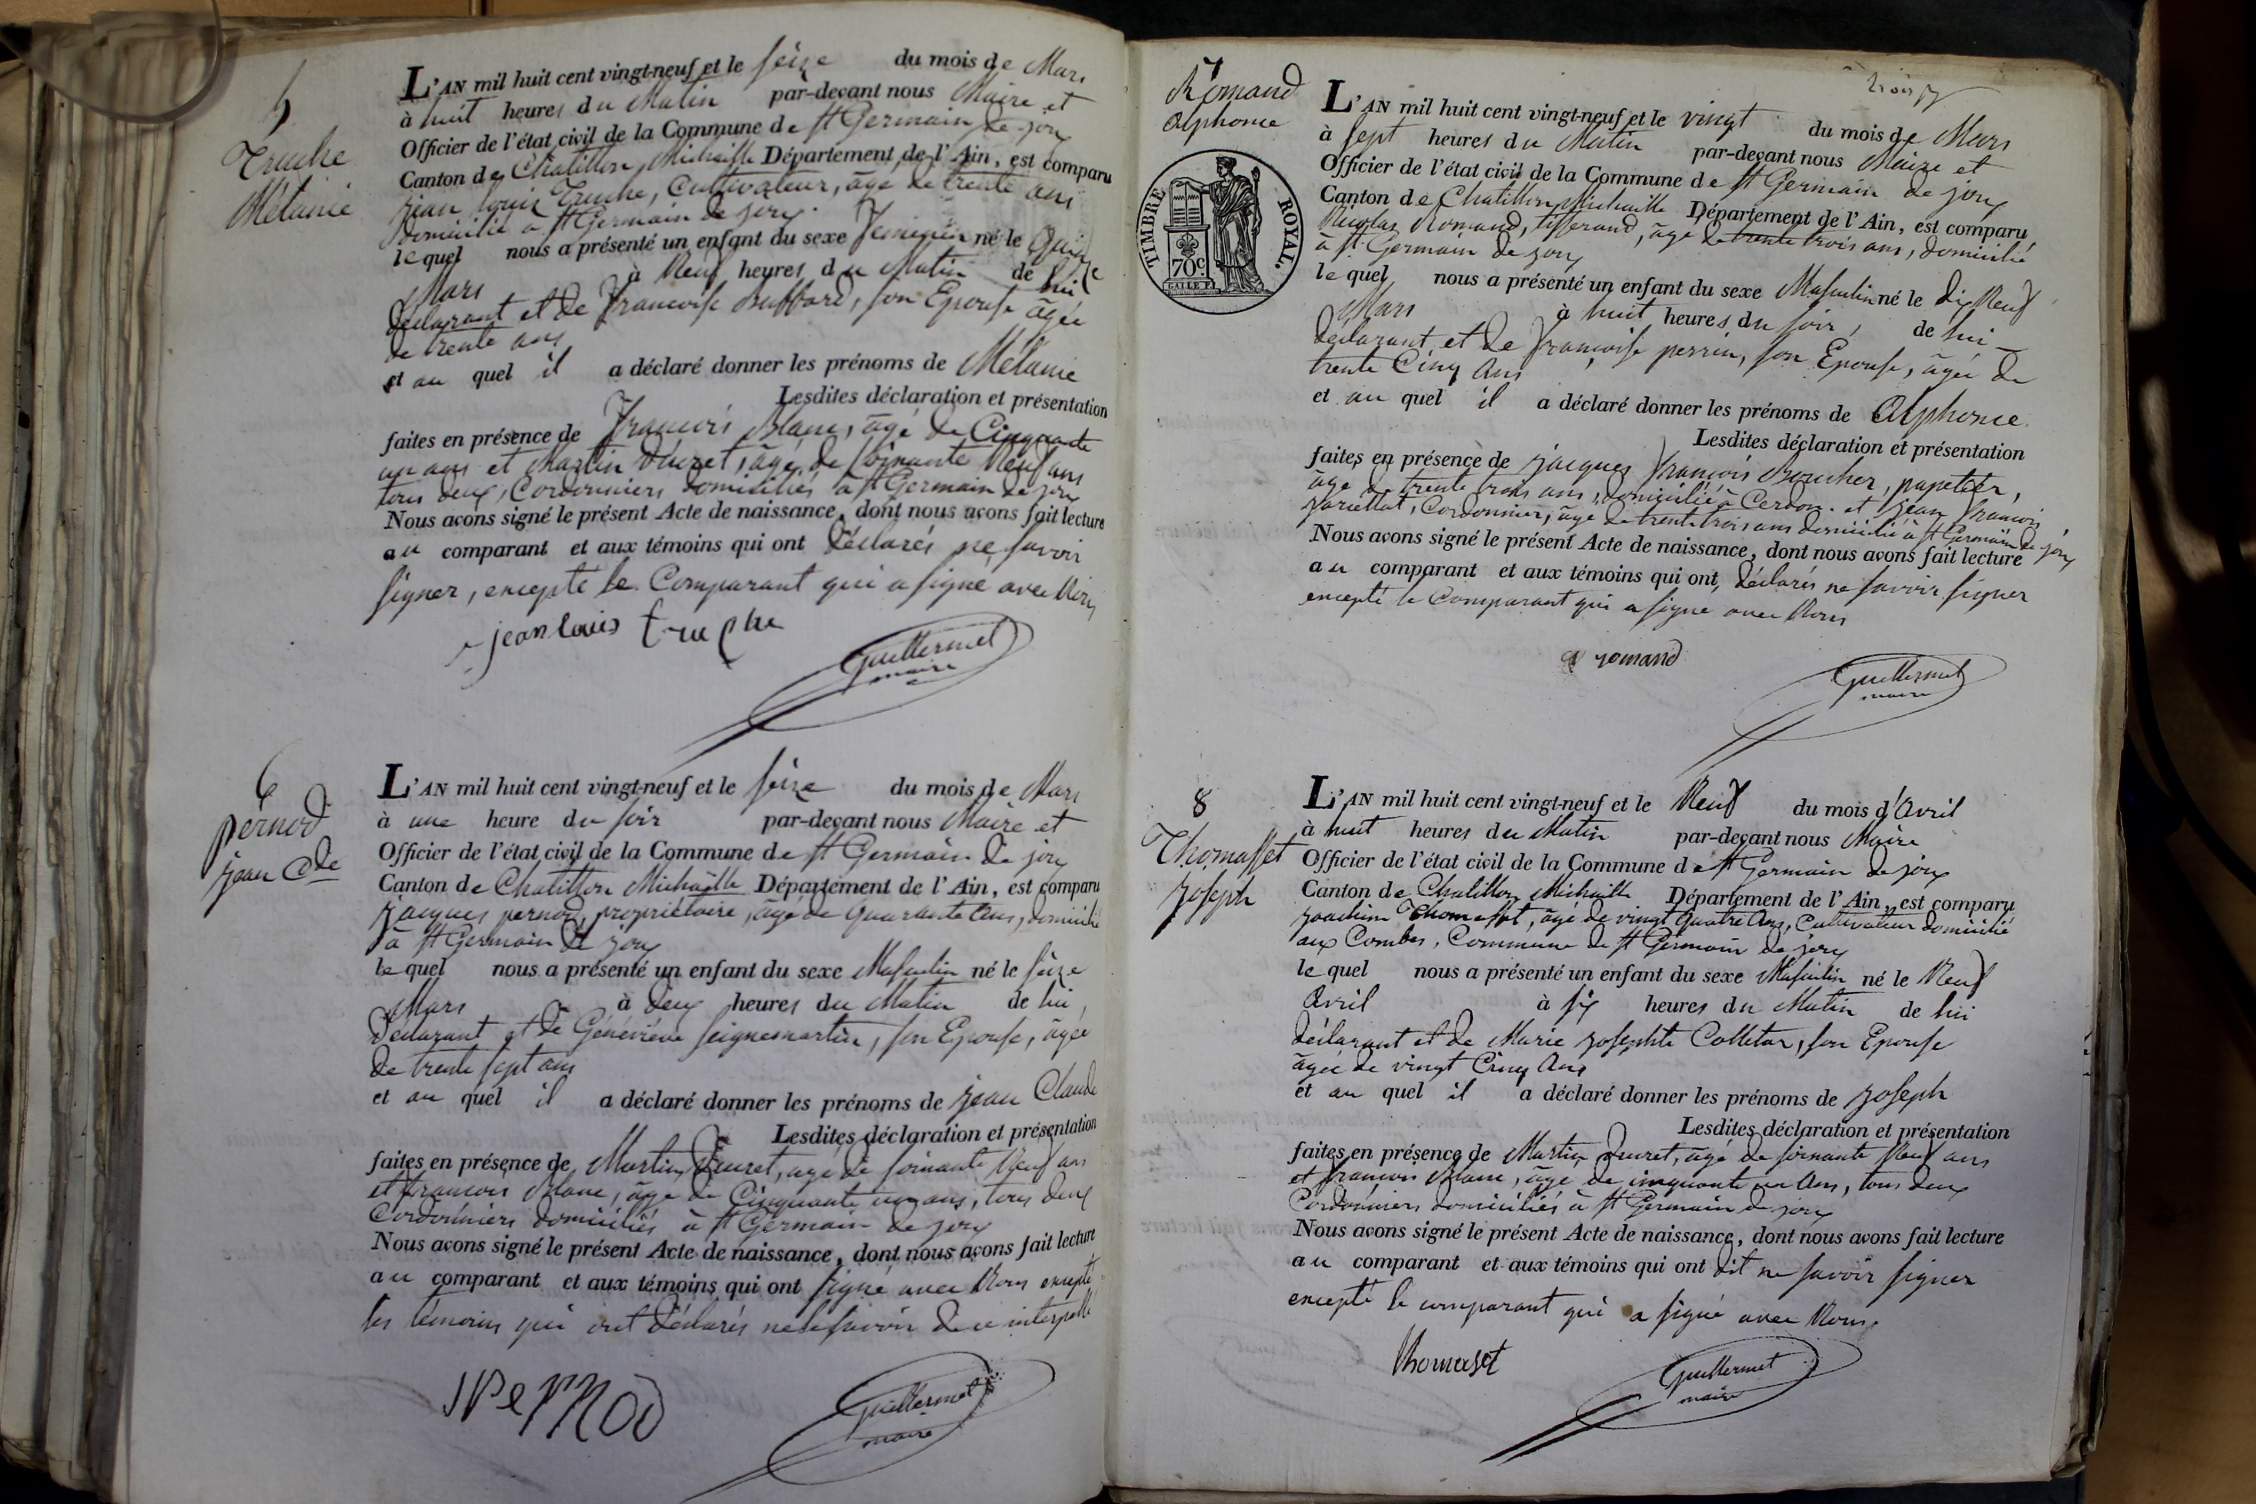 5
Truche
Mélanie
L'AN mil huit cent vingt-neuf et le seize du mois de Mars
à huit heures du Matin par-devant nous Maire et
Officier de l'état civil de la Commune de St Germain de joux
Canton de Chatillon Michaille Département de l'Ain, est comparu
jean louis Truche, Cultivateur, âgé de trente ans
domicilié à St Germain de joux.
lequel nous a présenté un enfant du sexe feminin né le Quinze
Mars à Neuf heures du Matin de lui
déclarant et de françoise Buffard, son Epouse âgée
de trente ans
et au quel il a déclaré donner les prénoms de Mélanie
Lesdites déclaration et présentation
faites en présence de francois Blanc, âgé de Cinquante
un ans et Martin Ducret, âgé de soixante Neuf ans
tous deux, Cordonniers domiciliés à St Germain de joux
Nous avons signé le présent Acte de naissance, dont nous avons fait lecture
au comparant et aux témoins qui ont déclarés ne savoir
signer, excepté le Comparant qui a signé avec Nous
jean louis truche
Guillermet
maire
6
pernod
jean Cde
L'AN mil huit cent vingt-neuf et le seize du mois de Mars
à une heure du soir par-devant nous Maire et
Officier de l'état civil de la Commune de St Germain de joux
Canton de Chatillon Michaille Département de l'Ain, est comparu
jacques pernod, propriétaire, âgé de quarante Ans, domicilié
à St Germain de joux
lequel nous a présenté un enfant du sexe Masculin né le seize
Mars à deux heures du Matin de lui
Déclarant et de Généviève seignemartin, son Epouse, âgée
de trente sept ans
et au quel il a déclaré donner les prénoms de jean Claude
Lesdites déclaration et présentation
faites en présence de Martin Ducret, âgé de soixante Neuf ans
et francois Blanc, âgé de Cinquante un ans, tous deux
Cordonniers domiciliés à St Germain de joux
Nous avons signé le présent Acte de naissance, dont nous avons fait lecture
au comparant et aux témoins qui ont signé avec Nous excepté
les témoins qui ont déclarés ne le savoir de ce interpellé
Pernod
Guillermet
maire
7
Romand
Alphonse
TIMBRE ROYAL.
70c
L'AN mil huit cent vingt-neuf et le vingt du mois de Mars
à sept heures du Matin par-devant nous Maire et
Officier de l'état civil de la Commune de St Germain de joux
Canton de Chatillon Michaille Département de l'Ain, est comparu
Nicolas Romand, tisserand, âgé de trente trois ans, domicilié
à St Germain de joux
lequel nous a présenté un enfant du sexe Masculin né le dix Neuf
Mars à huit heures du soir, de lui
déclarant et de françoise perrin, son Epouse, âgée de
trente Cinq Ans
et au quel il a déclaré donner les prénoms de Alphonse.
Lesdites déclaration et présentation
faites en présence de jacques francois Boucher, papetier,
âgé de trente trois ans, domicilié à Cerdon. et jean francois
Cordonnier, âgé de trente trois ans domicilié à St Germain de joux
Nous avons signé le présent Acte de naissance, dont nous avons fait lecture
au comparant et aux témoins qui ont déclarés ne savoir signer
excepté le Comparant qui a signé avec Nous
romand
Guillermet
maire
8
Thomasset
joseph
L'AN mil huit cent vingt-neuf et le Neuf du mois d'Avril
à huit heures du Matin par-devant nous Maire
Officier de l'état civil de la Commune de St Germain de joux
Canton de Chatillon Michaille Département de l'Ain, est comparu
joachim Thomasset, âgé de vingt quatre Ans, Cultivateur domicilié
aux Combes, Commune de St Germain de joux
lequel nous a présenté un enfant du sexe Masculin né le Neuf
Avril à six heures du Matin de lui
déclarant et de Marie josephte Colletaz, son Epouse
âgée de vingt Cinq Ans
et au quel il a déclaré donner les prénoms de joseph
Lesdites déclaration et présentation
faites en présence de Martin Ducret, âgé de soixante Neuf ans
et francois Blanc, âgé de cinquante un Ans, tous deux
Cordonniers domiciliés à St Germain de joux
Nous avons signé le présent Acte de naissance, dont nous avons fait lecture
au comparant et aux témoins qui ont dit ne savoir signer
excepté le comparant qui a signé avec Nous.
Thomaset
Guillermet
maire